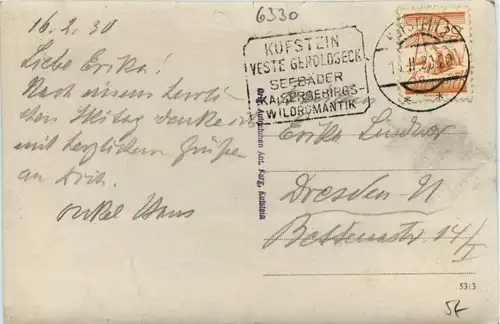 16.2.30
Liebe Erika!
Nach einem herrli-
chen Skitag denke ich
mit herzlichen Grüßen
an Dich.
Onkel Hans
6330
KUFSTEIN
VESTE GEROLDSECK
SEEBÄDER
KAISERGEBIRGS-
WILDROMANTIK
KUFSTEIN
Erika Lindner
Dresden N
14/I
Orig. Aufnahmen Ant. Karg, Kufstein
5313